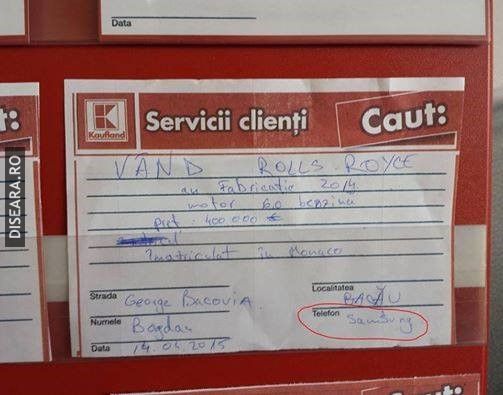 Data
t:
Kaufland
Servicii clienți
Caut:
VÂND ROLLS-ROYCE
an Fabricatie 2014
motor 6.0 benzina
pret: 400.000 €
Inmatriculat în Monaco
Strada George Bacovia
Localitatea BACĂU
Numele Bogdan
Telefon Samsung
Data 14.04.2015
DISEARA.RO